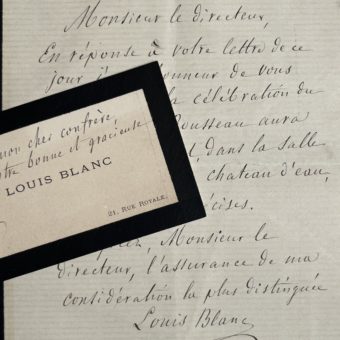 Monsieur le directeur,
En réponse à votre lettre de ce
jour j' honneur de vous
la célébration du
Rousseau aura
dans la salle
chateau d'eau,
mon cher confrère,
votre bonne et gracieuse
LOUIS BLANC
21, RUE ROYALE.
Monsieur le
directeur, l'assurance de ma
considération la plus distinguée
Louis Blanc